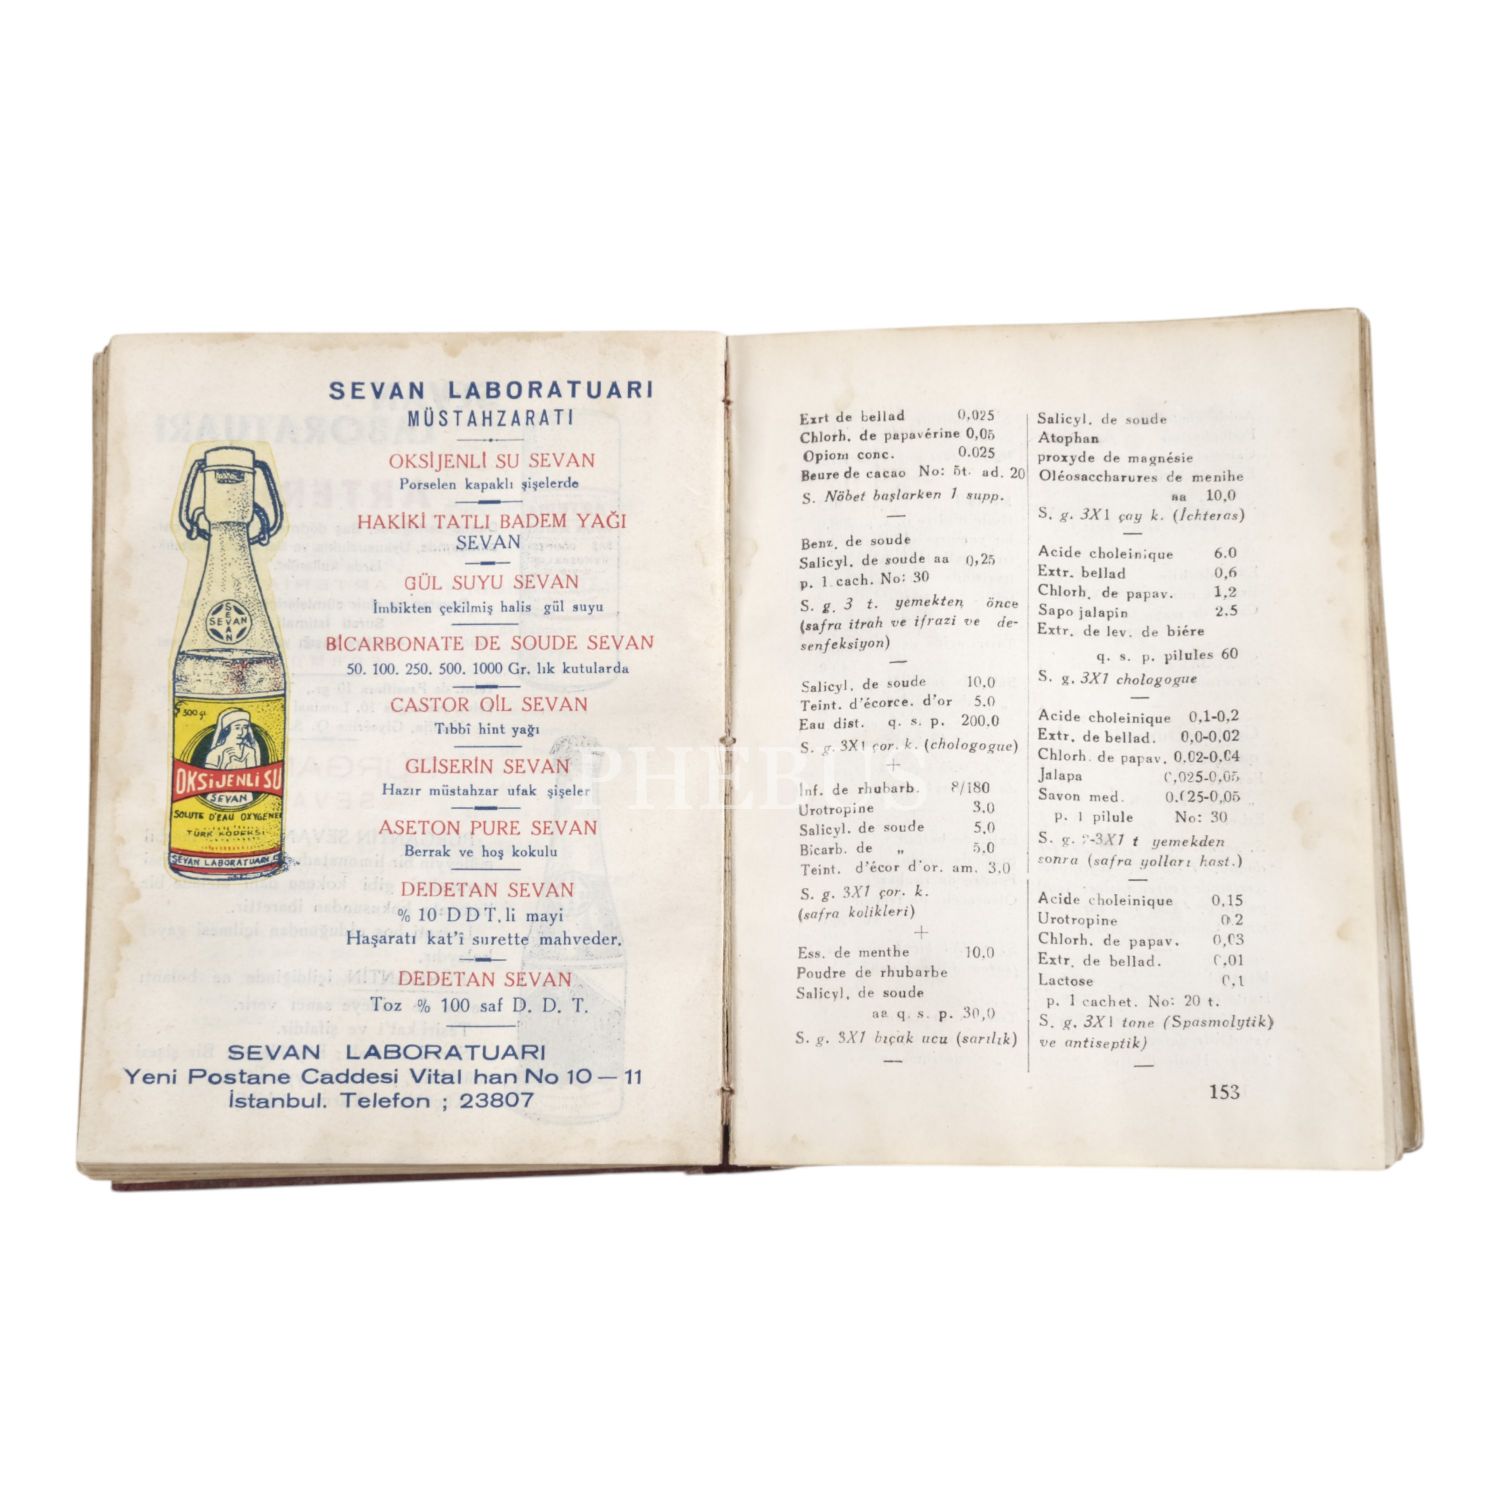 SEVAN LABORATUARI
MÜSTAHZARATI
OKSİJENLİ SU SEVAN
Porselen kapaklı şişelerde
HAKİKİ TATLI BADEM YAĞI
SEVAN
GÜL SUYU SEVAN
İmbikten çekilmiş halis gül suyu
BİCARBONATE DE SOUDE SEVAN
50. 100. 250. 500. 1000 Gr. lık kutularda
CASTOR OİL SEVAN
Tıbbî hint yağı
GLİSERİN SEVAN
Hazır müstahzar ufak şişeler
ASETON PURE SEVAN
Berrak ve hoş kokulu
DEDETAN SEVAN
% 10 DDT.li mayi
Haşaratı kat'i surette mahveder.
DEDETAN SEVAN
Toz % 100 saf D. D. T.
SEVAN LABORATUARI
Yeni Postane Caddesi Vital han No 10 — 11
İstanbul. Telefon ; 23807
SEVAN
SEVAN
300 gr.
OKSİJENLİ SU
SEVAN
SOLUTE D'EAU OXYGENEE
TÜRK KODEKSİ
SEVAN LABORATUARI
Exrt de bellad 0,025
Chlorh. de papavérine 0,05
Opiom conc. 0.025
Beure de cacao No: 5t. ad. 20
S. Nöbet başlarken 1 supp.
Benz. de soude
Salicyl. de soude aa 0,25
p. 1 cach. No: 30
S. g. 3 t. yemekten önce
(safra itrah ve ifrazi ve de-
senfeksiyon)
Salicyl. de soude 10,0
Teint. d'écorce. d'or 5.0
Eau dist. q. s. p. 200.0
S. g. 3X1 çor. k. (chologogue)
+
Inf. de rhubarb. 8/180
Urotropine 3.0
Salicyl. de soude 5,0
Bicarb. de „ 5,0
Teint. d'écor d'or. am. 3,0
S. g. 3X1 çor. k.
(safra kolikleri)
+
Ess. de menthe 10,0
Poudre de rhubarbe
Salicyl. de soude
aa q. s. p. 30,0
S. g. 3X1 bıçak ucu (sarılık)
Salicyl. de soude
Atophan
proxyde de magnésie
Oléosaccharures de menihe
aa 10,0
S. g. 3X1 çay k. (Ichteras)
Acide choleinique 6.0
Extr. bellad 0,6
Chlorh. de papav. 1,2
Sapo jalapin 2.5
Extr. de lev. de biére
q. s. p. pilules 60
S. g. 3X1 chologogue
Acide choleinique 0,1-0,2
Extr. de bellad. 0,0-0,02
Chlorh. de papav. 0.02-0,04
Jalapa 0,025-0,05
Savon med. 0.025-0,05
p. 1 pilule No: 30
S. g. 2-3X1 t yemekden
sonra (safra yolları hast.)
Acide choleinique 0,15
Urotropine 0.2
Chlorh. de papav. 0,03
Extr. de bellad. 0,01
Lactose 0,1
p. 1 cachet. No: 20 t.
S. g. 3X1 tane (Spasmolytik)
ve antiseptik)
153
PHEBUS